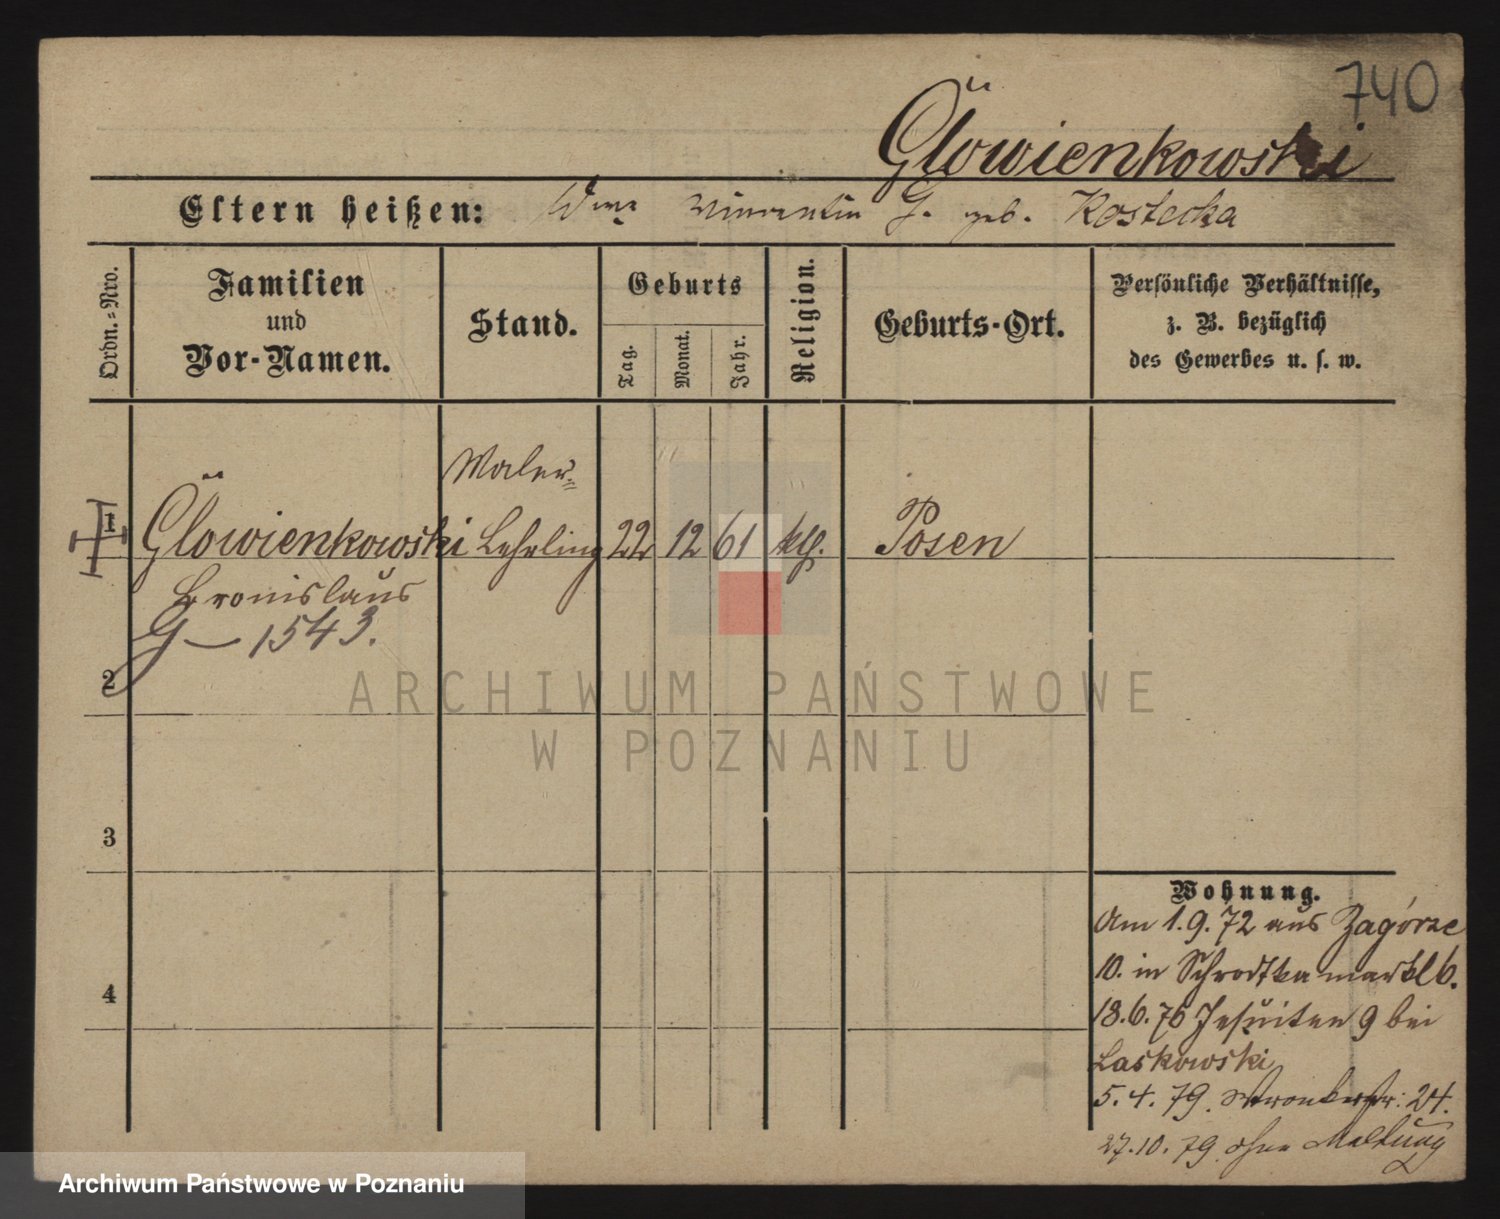 740
Głowienkowski
Eltern heißen: Wwe Vincentin G. geb. Kostecka
Ordn.-Nro.
Familien
und
Vor-Namen.
Stand.
Geburts
Tag.
Monat.
Jahr.
Religion.
Geburts-Ort.
Persönliche Verhältnisse,
z. B. bezüglich
des Gewerbes u. s. w.
Maler=
1 Głowienkowski Lehrling 22 12 61 kth. Posen
Bronislaus
G - 1543.
2
3
4
Wohnung.
Am 1.9.72 aus Zagórze
10. in Schrodkamarkt 6.
18.6.76 Jesuiten 9 bei
Laskowski
5.4.79. Wronkerstr: 24.
27.10.79 ohne Meldung
ARCHIWUM PAŃSTWOWE
W POZNANIU
Archiwum Państwowe w Poznaniu